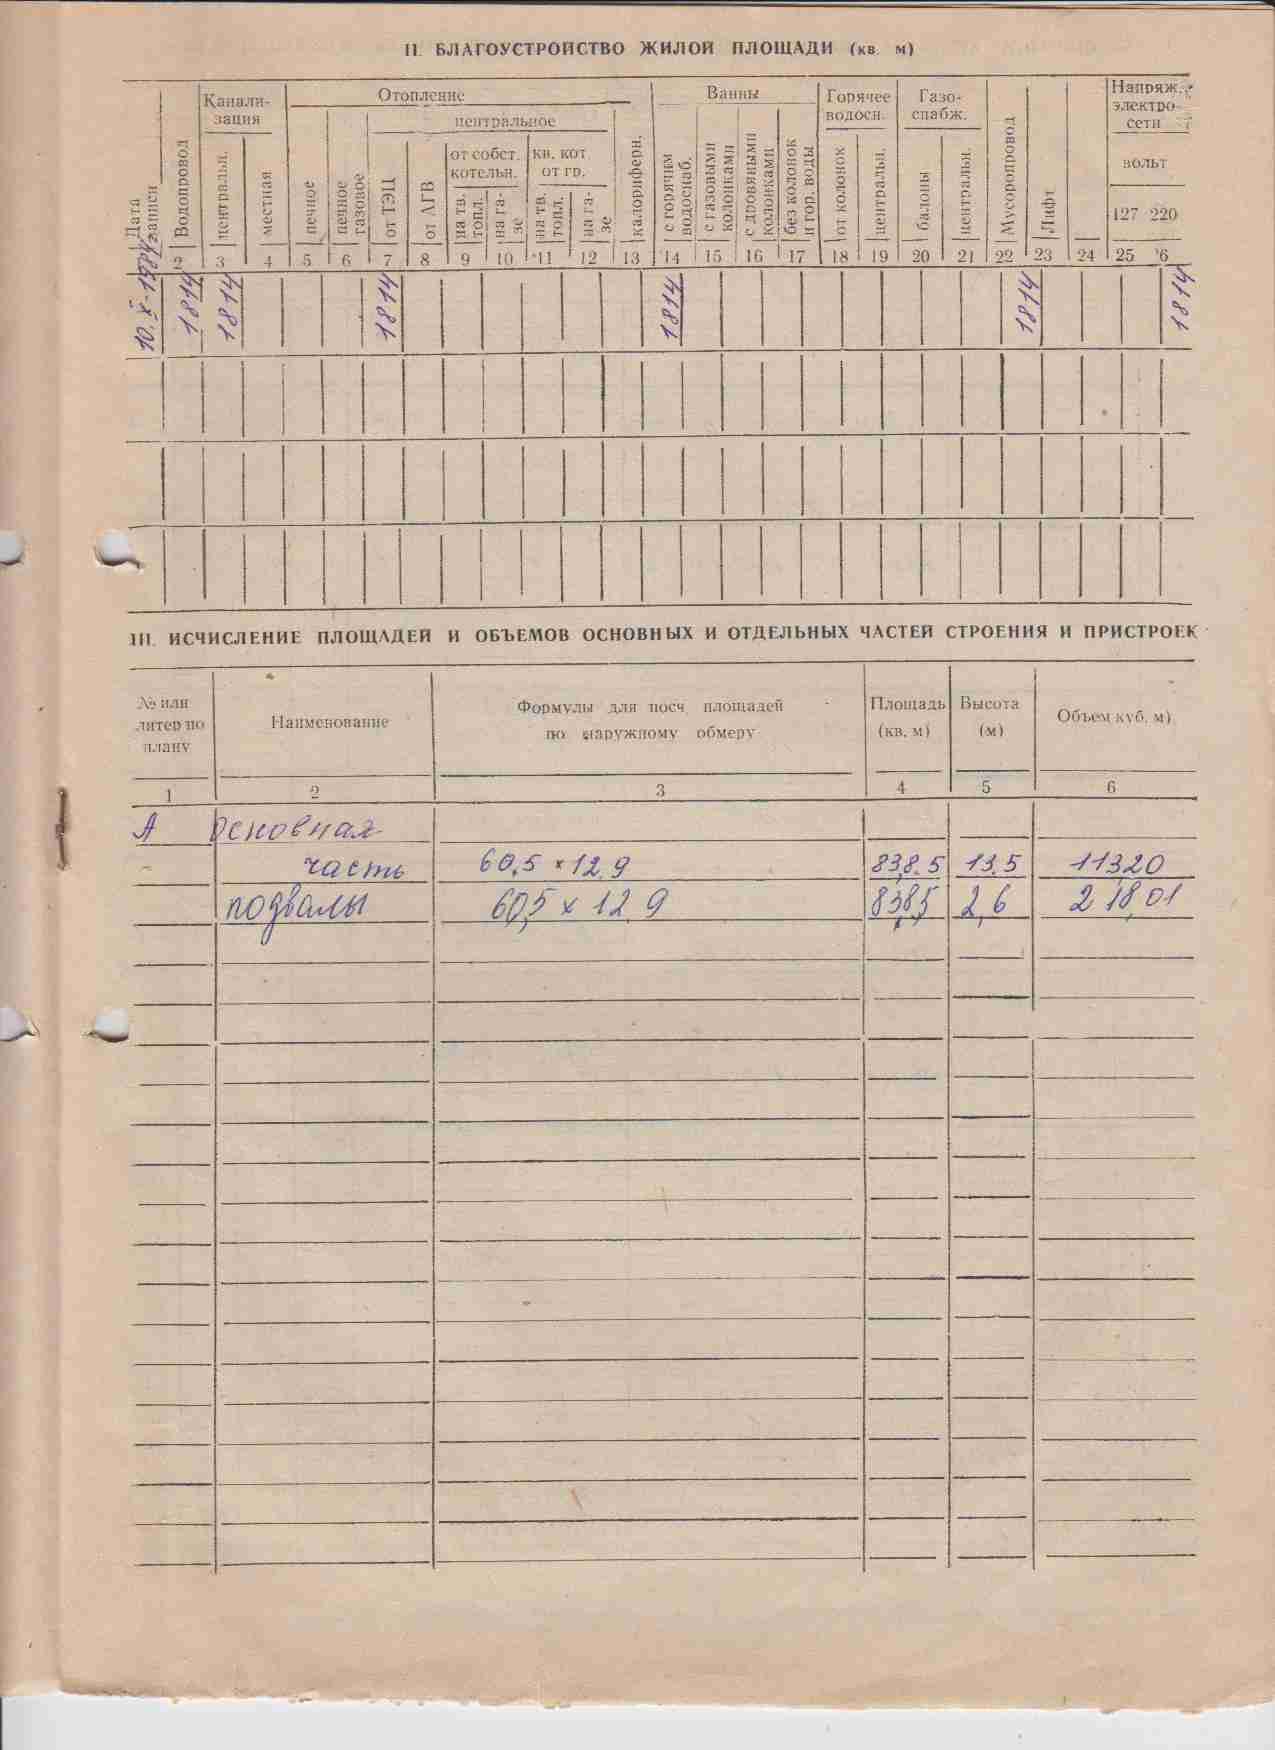 II. БЛАГОУСТРОЙСТВО ЖИЛОЙ ПЛОЩАДИ (кв. м)
Дата записи
Водопровод
Канализация
центральн.
местная
Отопление
печное
печное газовое
центральное
от ТЭЦ
от АГВ
от собст. котельн.
на тв. топл.
на газе
кв. кот. от гр.
на тв. топл.
на газе
калориферн.
Ванны
с горячим водоснаб.
с газовыми колонками
с дровяными колонками
без колонок и гор. воды
Горячее водосн.
от колонок
центральн.
Газоснабж.
балоны
центральн.
Мусоропровод
Лифт
Напряж. электросети
вольт
127 220
2 3 4 5 6 7 8 9 10 11 12 13 14 15 16 17 18 19 20 21 22 23 24 25 26
10. X- 1814 1814 1814 1814 1814 1814
III. ИСЧИСЛЕНИЕ ПЛОЩАДЕЙ И ОБЪЕМОВ ОСНОВНЫХ И ОТДЕЛЬНЫХ ЧАСТЕЙ СТРОЕНИЯ И ПРИСТРОЕК
№ или литер по плану
Наименование
Формулы для посч. площадей
по наружному обмеру
Площадь (кв. м)
Высота (м)
Объем куб. м)
1 2 3 4 5 6
А основная
часть 60.5 × 12.9 838.5 13.5 11320
подвалы 60,5 × 12.9 838,5 2,6 218,01